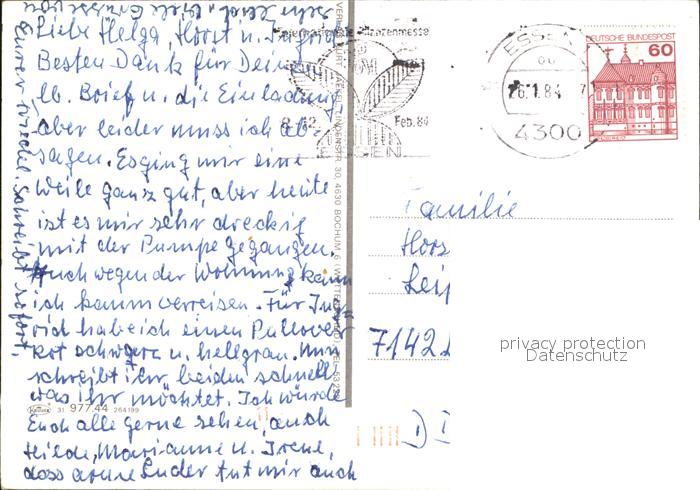 Liebe Helga, Horst u. Ingrid
Besten Dank für Deinen
lb. Brief u. die Einladung,
aber leider muss ich ab-
sagen. Es ging mir eine
Weile ganz gut, aber heute
ist es mir sehr dreckig
mit der Pumpe gegangen.
Auch wegen der Wohnung kann
ich kaum verreisen. Für Ing
rid habe ich einen Pullover
rot schwarz u. hellgrau. Nun
schreibt ihr beiden schnell
was ihr möchtet. Ich würde
Euch alle gerne sehen, auch
Heide, Marianne u. Irene,
dass arme Luder tut mir auch
sehr leid. Viele Grüsse von
Eurer Schreibt sofort.
Internationale Pflanzenmesse
Feb. 84
ESSEN
ESSEN
26.1.84
7
4300
DEUTSCHE BUNDESPOST
60
30, 4630 BOCHUM 6
31 977.44 264199
Familie
Hors
Leip
7142
D
privacy protection
Datenschutz